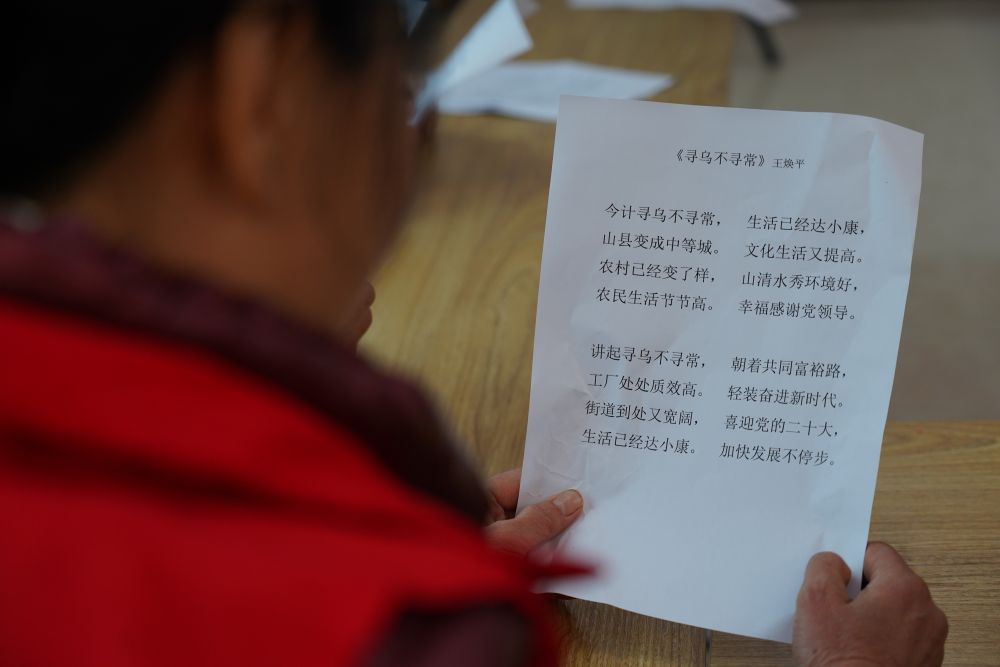 《寻乌不寻常》 王焕平
今计寻乌不寻常， 生活已经达小康，
山县变成中等城。 文化生活又提高。
农村已经变了样， 山清水秀环境好，
农民生活节节高。 幸福感谢党领导。
讲起寻乌不寻常， 朝着共同富裕路，
工厂处处质效高。 轻装奋进新时代。
街道到处又宽阔， 喜迎党的二十大，
生活已经达小康。 加快发展不停步。